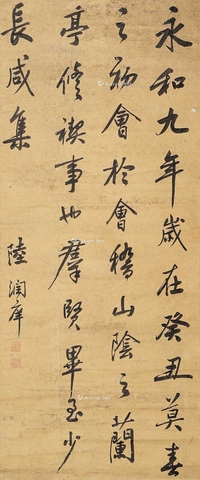 永和九年歲在癸丑莫春
之初會於會稽山陰之蘭
亭修禊事也羣賢畢至少
長咸集
陸潤庠